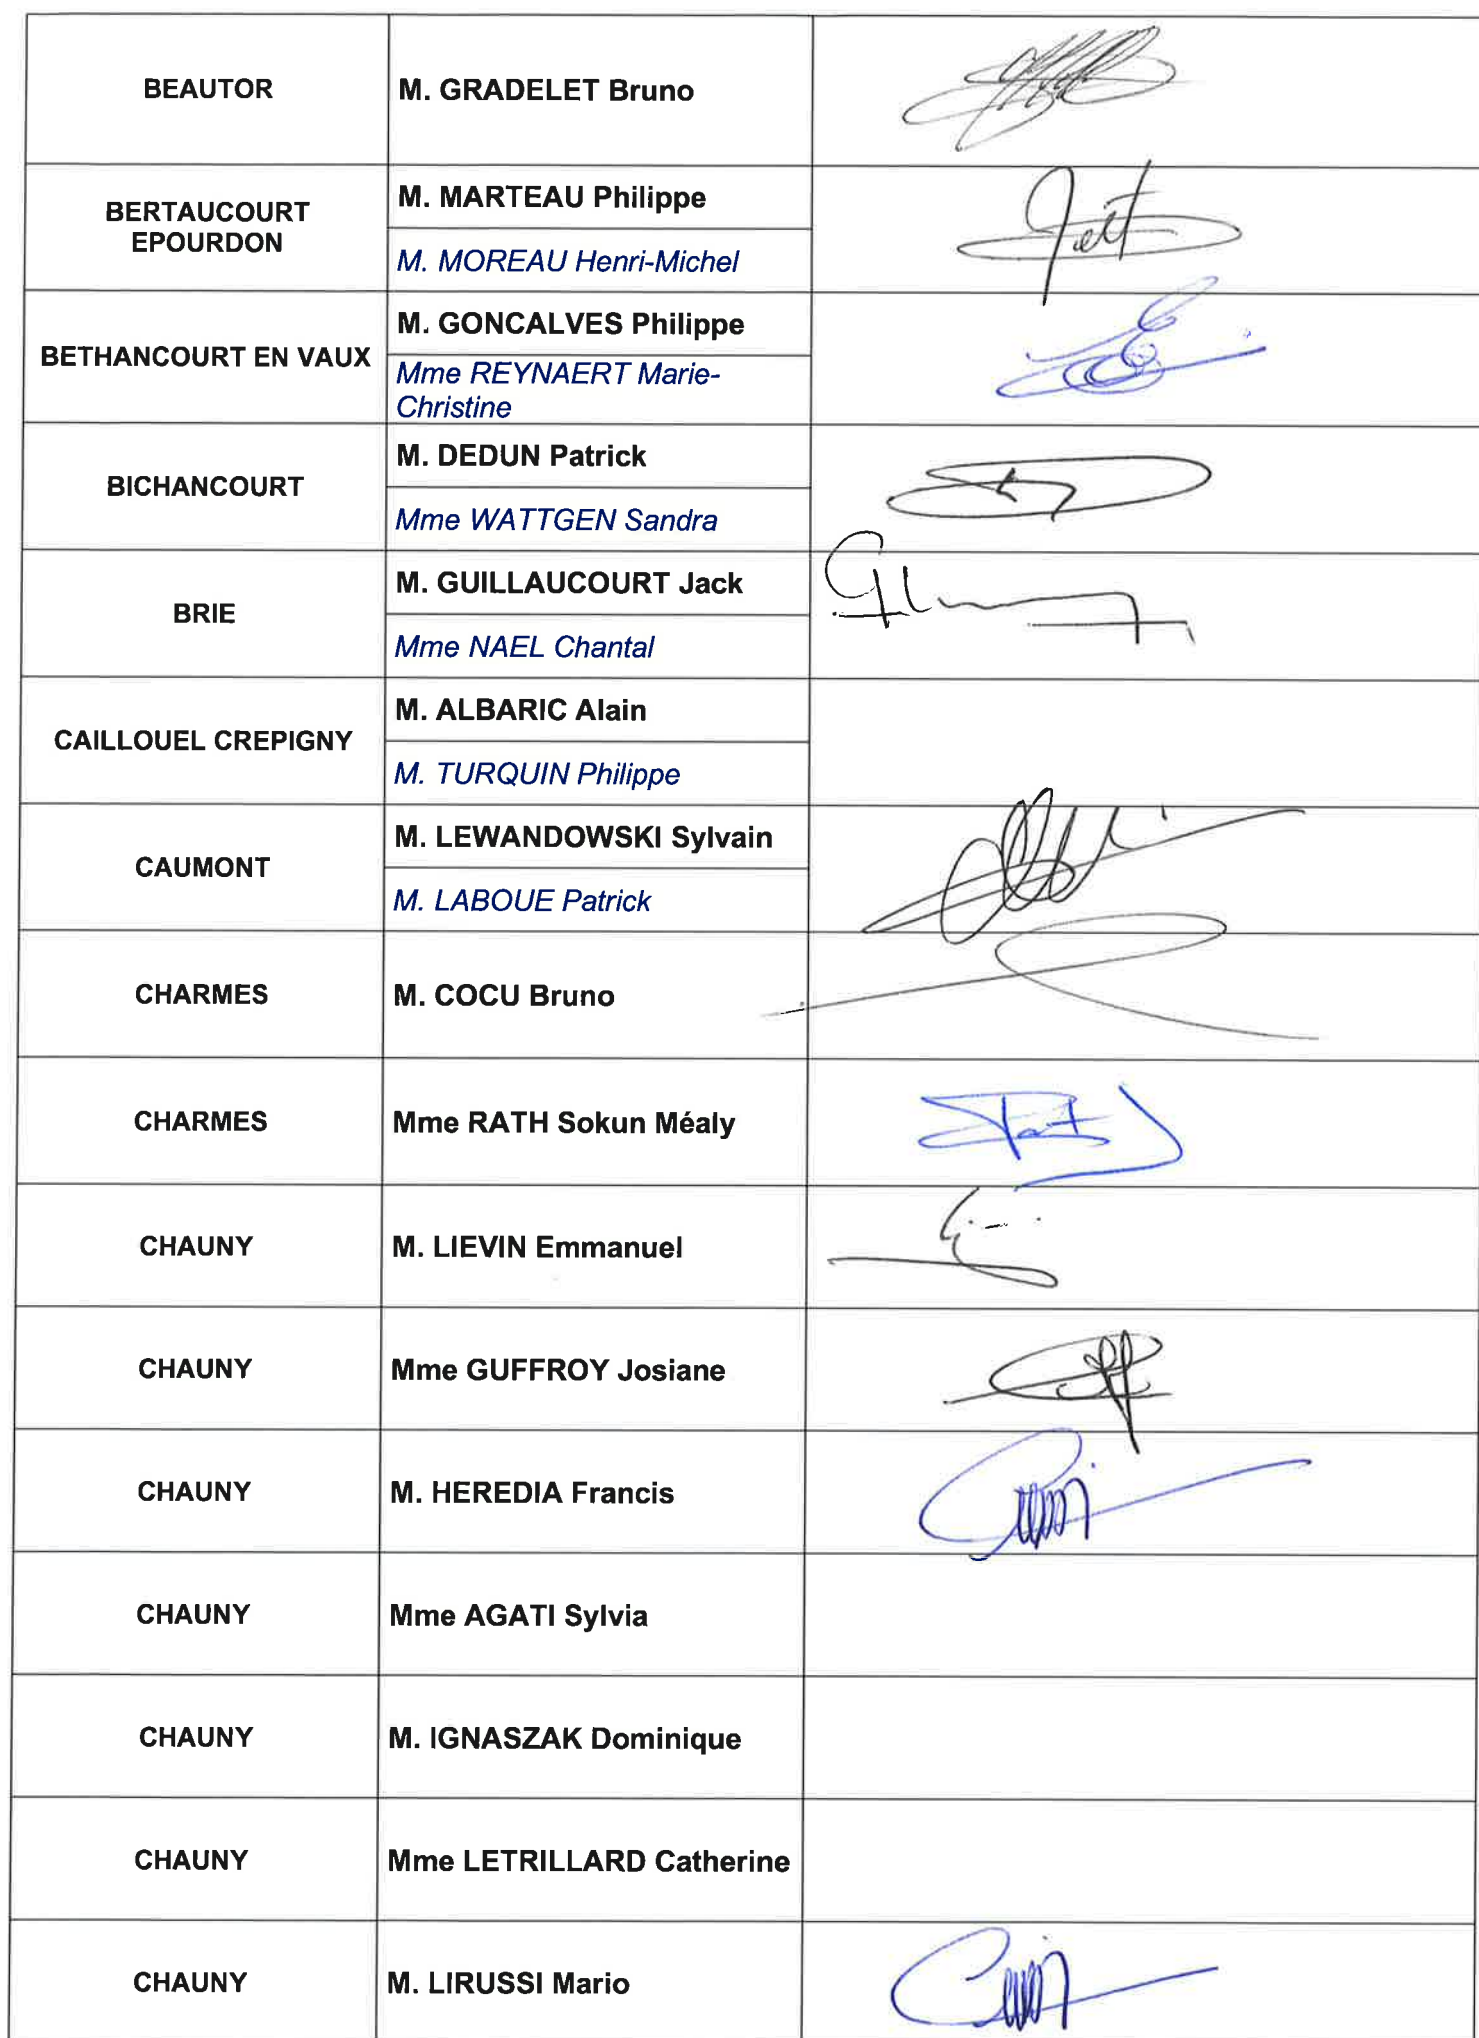 BEAUTOR
M. GRADELET Bruno
BERTAUCOURT
EPOURDON
M. MARTEAU Philippe
M. MOREAU Henri-Michel
BETHANCOURT EN VAUX
M. GONCALVES Philippe
Mme REYNAERT Marie-
Christine
BICHANCOURT
M. DEDUN Patrick
Mme WATTGEN Sandra
BRIE
M. GUILLAUCOURT Jack
Mme NAEL Chantal
CAILLOUEL CREPIGNY
M. ALBARIC Alain
M. TURQUIN Philippe
CAUMONT
M. LEWANDOWSKI Sylvain
M. LABOUE Patrick
CHARMES
M. COCU Bruno
CHARMES
Mme RATH Sokun Méaly
CHAUNY
M. LIEVIN Emmanuel
CHAUNY
Mme GUFFROY Josiane
CHAUNY
M. HEREDIA Francis
CHAUNY
Mme AGATI Sylvia
CHAUNY
M. IGNASZAK Dominique
CHAUNY
Mme LETRILLARD Catherine
CHAUNY
M. LIRUSSI Mario